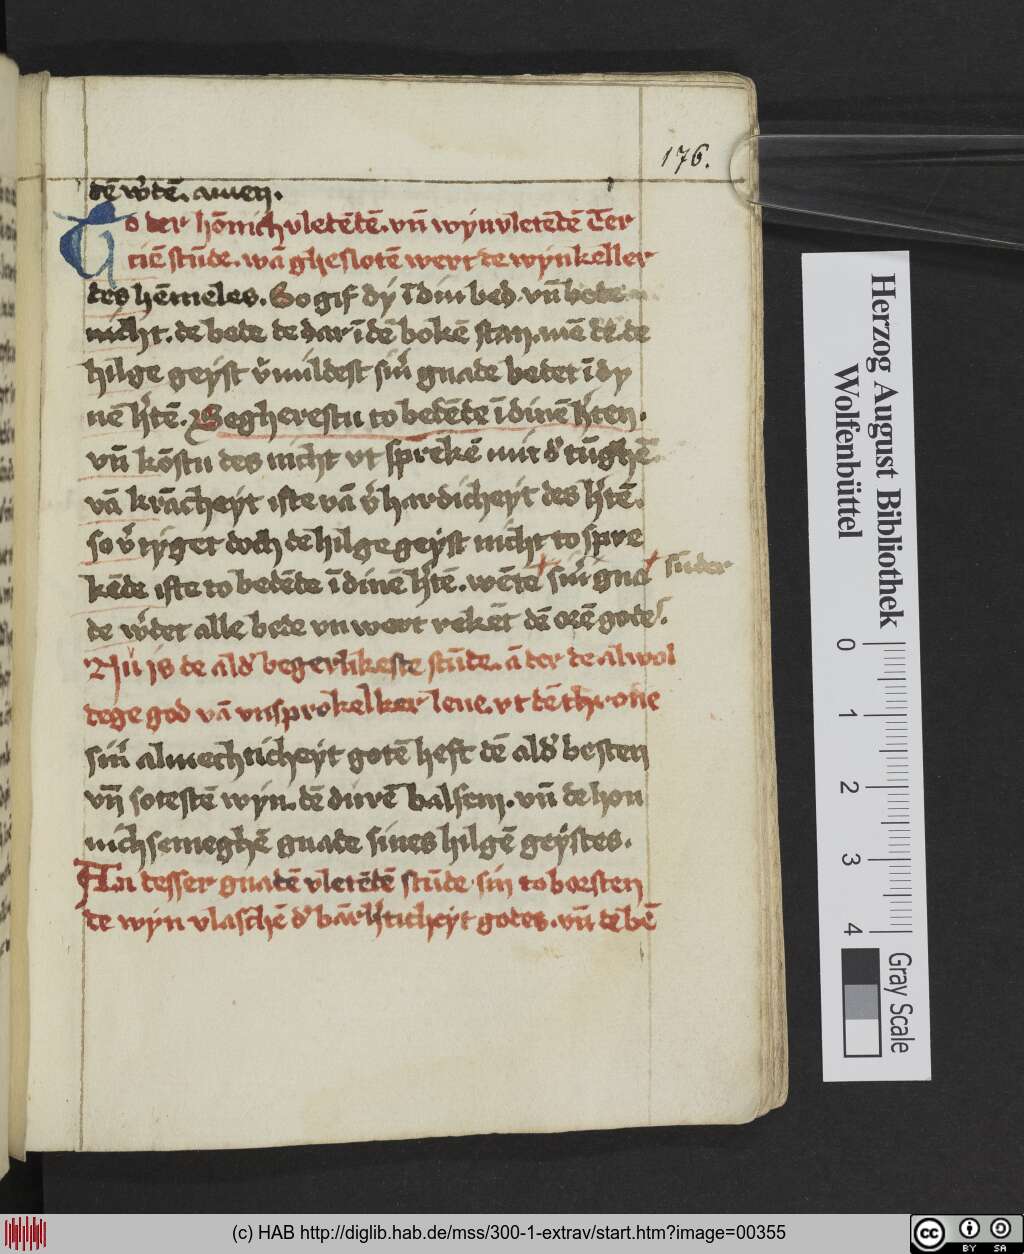 176.
dē w̾dē. amen.
To der hōnnich vletēdē. vn̄ wynvletēdē Ter
ciē stūde. wā gheslotē wert de wynkeller
des hēmeles. So gif dy ī din bed. vn̄ bede
nicht. de bede de dar ī dē bokē stan. mē de
hilge geyst v̾mildest sin̾ gnade bedet ī dy
nē h̾tē. Segherestu to bedēde ī dinē h̾ten.
vn̄ kōstu des nicht vt sprekē mit d̾ tūghē.
vā krācheyt iste vā v̾hardicheyt des h̾tē.
so v̾tyget doch de hilge geyst nicht to spre
kēde iste to bedēde ī dinē h̾tē. wēte + sin̾ gna + sūder
de w̾det alle bede vn wert rekēt dē orē gode.
Nu is de ald̾ begerlikeste stūde. ā der de alwol
dege god vā vnsprokelker leue. vt dē throne
sin̾ almechticheyt gotē heft dē ald̾ besten
vn̄ sotestē wyn. dē durē balsem. vn̄ de hon
nichsemeghē gnade sines hilgē geystes.
An desser gnadē vletēdē stūde. sin to borsten
de wyn vlaschē d̾ bārh̾ticheyt godes. vn̄ de bē
Herzog August Bibliothek
Wolfenbüttel
0 1 2 3 4
Gray Scale
(c) HAB http://diglib.hab.de/mss/300-1-extrav/start.htm?image=00355
cc BY SA